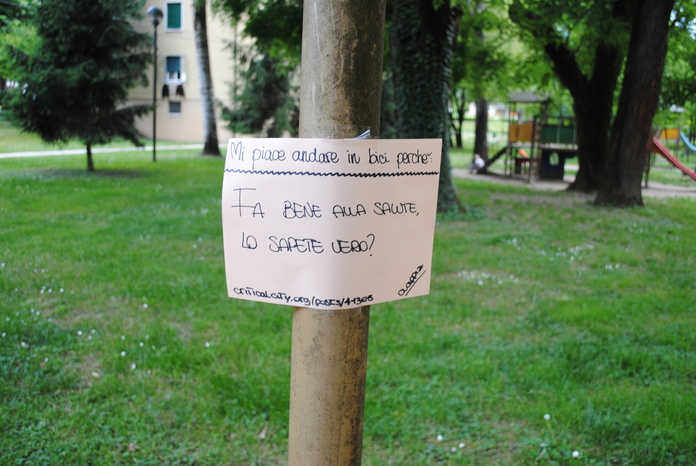 Mi piace andare in bici perchè:
FA BENE ALLA SALUTE,
LO SAPETE VERO?
criticalcity.org/posts/41368